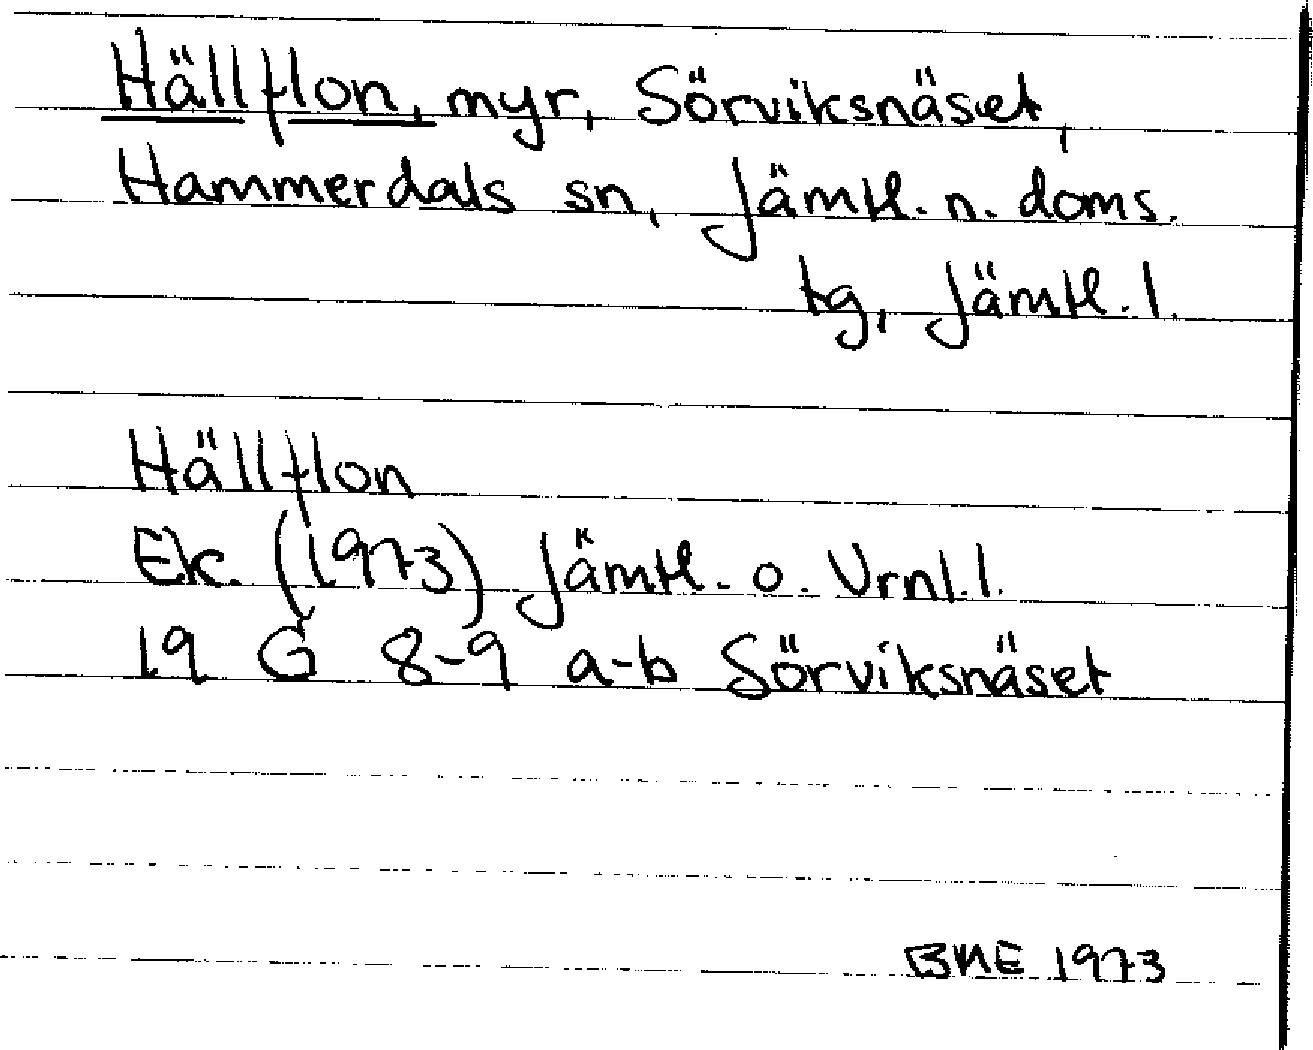 Hällflon, myr, Sörviksnäset,
Hammerdals sn, Jämtl. n. doms.
tg, Jämtl. l.
Hällflon
Ek. (1973) Jämtl. o. Vrnl. l.
19 G 8-9 a-b Sörviksnäset
BNE 1973